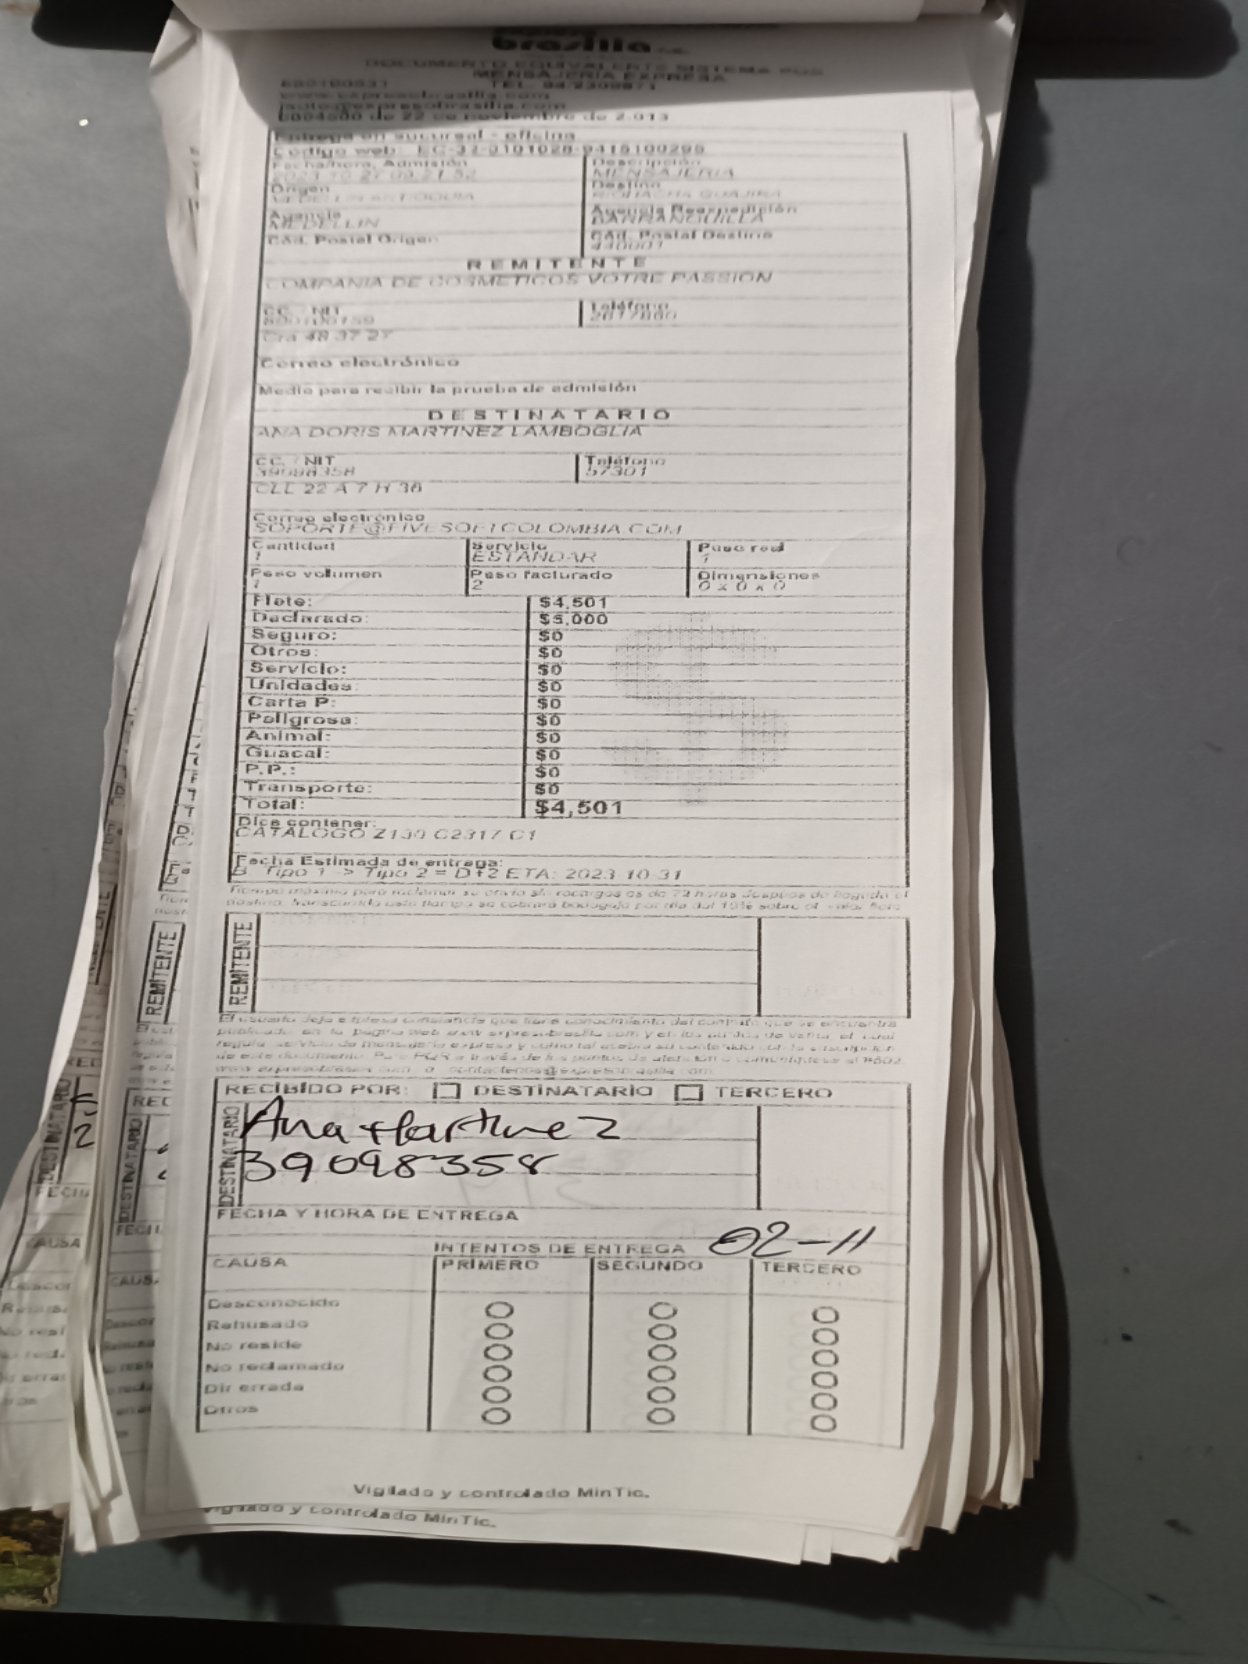 brasilia S.A.
DOCUMENTO EQUIVALENTE SISTEMA POS
MENSAJERIA EXPRESA
www.expresobrasilia.com
de 22 de noviembre de 2.013
Entrega en sucursal - oficina
Código web: EC-37-0101028-9415100295
Fecha/hora, Admisión Descripción
2023-10-27 09:21:52 MENSAJERIA
Origen Destino
MEDELLIN ANTIOQUIA RIOHACHA GUAJIRA
Agencia Agencia Reexpedición
MEDELLIN BARRANQUILLA
Cód. Postal Origen Cód. Postal Destino
440001
REMITENTE
COMPANIA DE COSMETICOS VOTRE PASSION
CC. / NIT Teléfono
Cra 48 37 27
Correo electrónico
Medio para recibir la prueba de admisión
DESTINATARIO
ANA DORIS MARTINEZ LAMBOGLIA
CC. / NIT Teléfono
39098358 57301
CLL 22 A 7 H 36
Correo electrónico
SOPORTE@FIVESOFTCOLOMBIA.COM
Cantidad Servicio Peso real
1 ESTANDAR 1
Peso volumen Peso facturado Dimensiones
1 2 0 x 0 x 0
Flete: $4,501
Declarado: $5,000
Seguro: $0
Otros: $0
Servicio: $0
Unidades: $0
Carta P: $0
Peligrosa: $0
Animal: $0
Guacal: $0
P.P.: $0
Transporte: $0
Total: $4,501
Dice contener:
CATALOGO Z130 C2317 C1
Fecha Estimada de entrega:
B Tipo 1 -> Tipo 2 = D+2 ETA: 2023-10-31
Tiempo máximo para reclamar su envío sin recargos es de 72 horas después de llegada al
destino, transcurrido este tiempo se cobrará bodegaje por día del 10% sobre el valor flete
REMITENTE
El usuario deja expresa constancia que tiene conocimiento del contrato que se encuentra
publicado en la pagina web www.expresobrasilia.com y en los puntos de venta, el cual
regula servicio de mensajería expresa y como tal acepta su contenido con la suscripción
de este documento. Para PQR a través de los puntos de atención o comuníquese al #502.
RECIBIDO POR: DESTINATARIO TERCERO
DESTINATARIO
Ana Martinez
39098358
FECHA Y HORA DE ENTREGA
02-11
INTENTOS DE ENTREGA
CAUSA PRIMERO SEGUNDO TERCERO
Desconocido
Rehusado
No reside
No reclamado
Dir errada
Otros
Vigilado y controlado MinTic.
Vigilado y controlado MinTic.